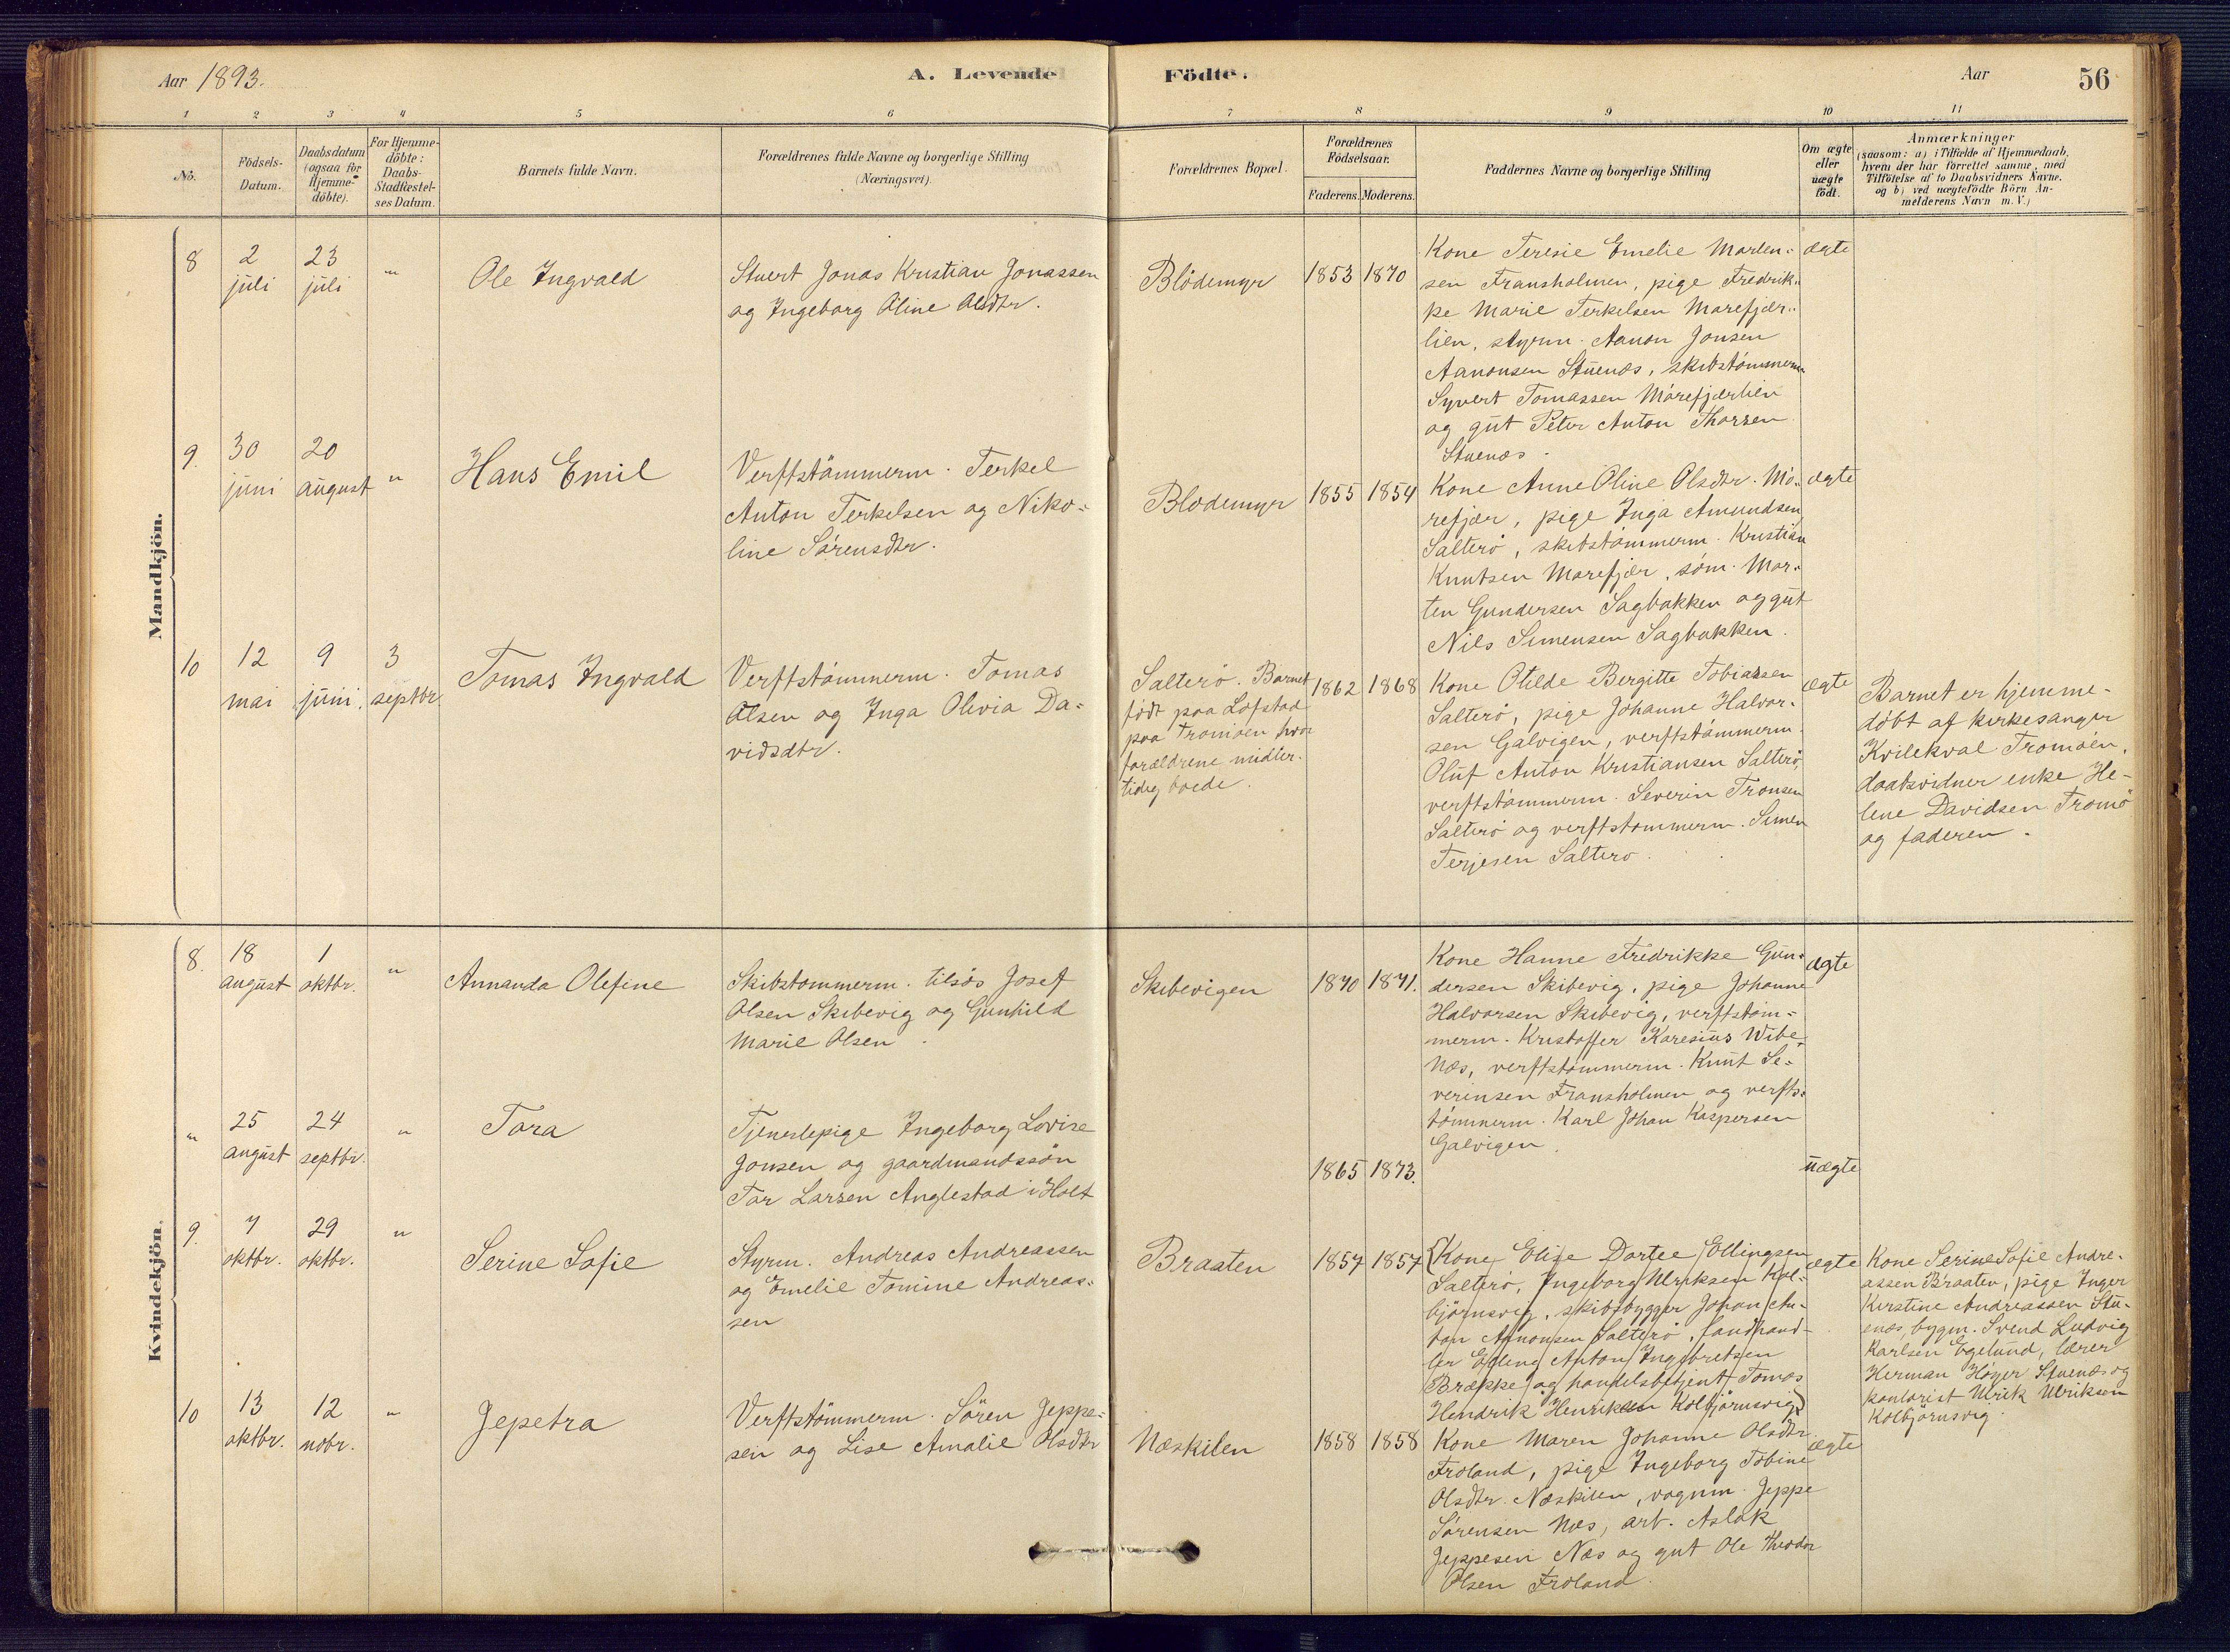 Aar 1893.
A. Levende
Födte.
Aar
56
1
2
3
4
5
6
7
8
9
10
11
No.
Födsels-
Datum.
Daabsdatum
(ogsaa for
Hjemme-
döbte).
For Hjemme-
döbte:
Daabs-
Stadfæstel-
ses Datum.
Barnets fulde Navn.
Forældrenes fulde Navne og borgerlige Stilling
(Næringsvei).
Forældrenes Bopæl.
Forældrenes
Födselsaar.
Faderens.
Moderens.
Faddernes Navne og borgerlige Stilling
Om ægte
eller
uægte
födt.
Anmærkninger
(saasom: a) i Tilfælde af Hjemmedaab,
hvem der har forrettet samme, med
Tilföielse af to Daabsvidners Navne.
og b) ved uægtefödte Börn An-
melderens Navn m. V.)
Mandkjön.
8
2
juli
23
juli
"
Ole Ingvald
Stuert Jonas Kristian Jonassen
og Ingeborg Oline Olsdtr.
Blödemyr
1853
1870
Kone Teresie Emelie Marten-
sen Fransholmen, pige Fredrik-
ke Marie Terkelsen Marefjær-
lien, styrm. Aanon Jonsen
Aanonsen Stuenæs, skibstömmerm.
Syvert Tomassen Mörefjærlien
og gut Peter Anton Thorsen
Stuenæs.
ægte
9.
30
juni
20
august
"
Hans Emil
Verftstömmerm. Terkel
Anton Terkelsen og Niko-
line Sörensdtr.
Blodemyr
1855
1854
Kone Anne Oline Olsdtr. Mö-
refjær, pige Inga Amundsen
Salterö, skibstömmerm. Kristian
Knutsen Marefjær, söm. Mor-
ten Gundersen Sagbakken og gut
Nils Simensen Sagbakken.
ægte
10
12
mai
9
juni.
3
septbr.
Tomas Ingvald
Verftstömmerm. Tomas
Olsen og Inga Olivia Da-
vidsdtr.
Salterö. Barnet
födt paa Lofstad
paa Tromöen hvor
forældrene midler-
tidig boede.
1862
1868
Kone Otilde Bergitte Tobiassen
Salterö, pige Johanne Halvor-
sen Galvigen, verftstömmerm.
Oluf Anton Kristiansen Salterö,
verftstömmerm. Severin Tronsen
Salterö og verftstömmerm. Simen
Terjesen Salterö.
ægte
Barnet er hjemme-
döbt af kirkesanger
Kvilekval Tromöen,
daabsvidner enke He-
lene Davidsen Tromö
og faderen.
Kvindekjön.
8.
18
august
1
oktbr.
"
Annanda Olefine
Skibstömmerm. tilsös Josef
Olsen Skibevig og Gunhild
Marie Olsen.
Skibevigen
1870
1871.
Kone Hanne Fredrikke Gun-
dersen Skibevig, pige Johanne
Halvorsen Skibevig, verftstöm-
merm. Kristoffer Karesius Wibe
Næs, verftstömmerm. Knut Se-
verinsen Fransholmen og verfts-
tömmerm. Karl Johan Kaspersen
Galvigen.
ægte
"
25
august
24
septbr.
"
Tora
Tjenestepige Ingeborg Lovise
Jonsen og gaardmandssön
Tor Larsen Anglestad i Holt
1865
1873.
uægte
9.
7
oktbr.
29
oktbr.
"
Serine Sofie
Styrm. Andreas Andreassen
og Emelie Tomine Andreas-
sen
Braaten
1857
1857
(Kone Elise Dortee Ellingsen
Salterö, Ingeborg Ulriksen Kol-
björnsvig, skibsbygger Johan An-
ton Aanonsen Salterö, landhand-
ler Elling Anton Ingebretsen
Brække og handelsbetjent Tomas
Hendrik Henriksen Kolbjörnsvig)
ægte
Kone Serine Sofie Andre-
assen Braaten, pige Inger
Kirstine Andreassen Stu-
enæs, bygm. Svend Ludvig
Karlsen Egelund, lærer
Herman Höyer Stuenæs og
kontorist Ulrik Ulriksen
Kolbjörnsvig.
10
13
oktbr.
12
nobr.
"
Jepetra
Verftstömmerm. Sören Jeppe-
sen og Lise Amalie Olsdtr
Næskilen
1858
1858
Kone Maren Johanne Olsdtr.
Froland, pige Ingeborg Tobine
Olsdtr. Næskilen, vognm. Jeppe
Sörensen Næs, arb. Aslak
Jeppesen Næs og gut Ole Theodor
Olsen Froland.
ægte